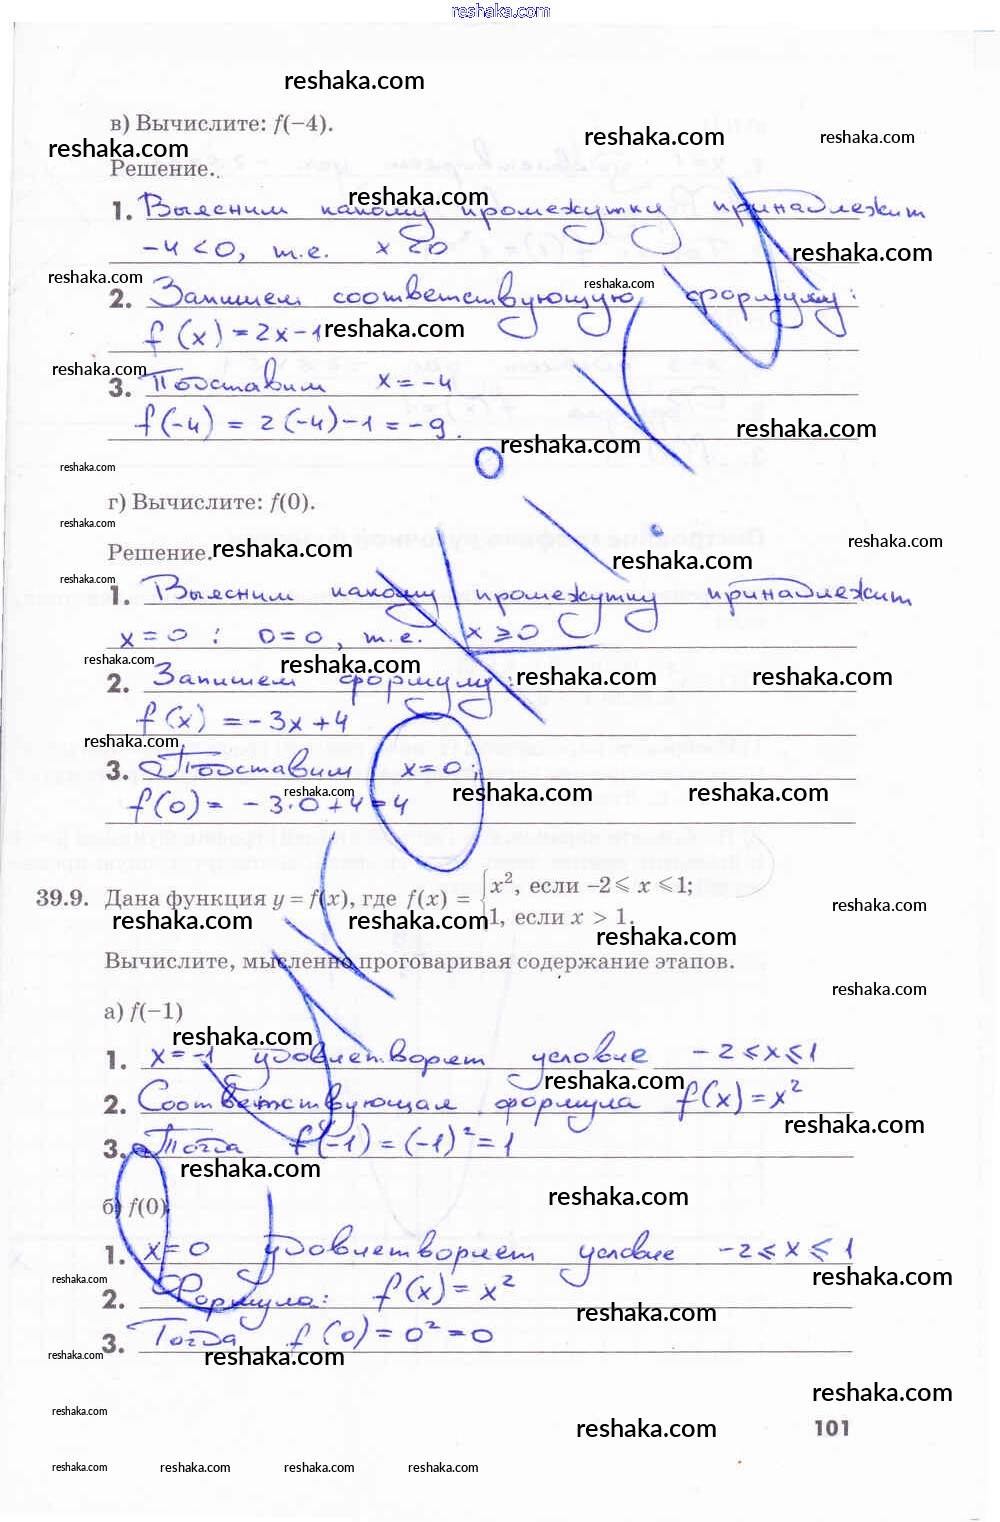 reshaka.com
reshaka.com
в) Вычислите: f(−4).
reshaka.com
reshaka.com
reshaka.com
Решение.
reshaka.com
reshaka.com
1. Выясним какому промежутку принадлежит
−4 < 0, т.е. x < 0
reshaka.com
reshaka.com
reshaka.com
2. Запишем соответствующую формулу:
f(x) = 2x − 1
reshaka.com
reshaka.com
3. Подставим x = −4
f(−4) = 2(−4) − 1 = −9.
reshaka.com
reshaka.com
reshaka.com
г) Вычислите: f(0).
reshaka.com
Решение.
reshaka.com
reshaka.com
reshaka.com
reshaka.com
1. Выясним какому промежутку принадлежит
x = 0 : 0 = 0, т.е. x ⩾ 0
reshaka.com
reshaka.com
reshaka.com
reshaka.com
2. Запишем формулу:
f(x) = −3x + 4
reshaka.com
3. Подставим x = 0;
reshaka.com
reshaka.com
reshaka.com
f(0) = −3·0 + 4 = 4
39.9. Дана функция y = f(x), где f(x) = { x², если −2 ⩽ x ⩽ 1;
1, если x > 1.
reshaka.com
reshaka.com
reshaka.com
reshaka.com
Вычислите, мысленно проговаривая содержание этапов.
reshaka.com
а) f(−1)
reshaka.com
1. x = −1 удовлетворяет условие −2 ⩽ x ⩽ 1
reshaka.com
2. Соответствующая формула f(x) = x²
reshaka.com
3. Тогда f(−1) = (−1)² = 1
reshaka.com
reshaka.com
б) f(0)
1. x = 0 удовлетворяет условие −2 ⩽ x ⩽ 1
reshaka.com
reshaka.com
2. Формула: f(x) = x²
reshaka.com
3. Тогда f(0) = 0² = 0
reshaka.com
reshaka.com
reshaka.com
reshaka.com
reshaka.com
101
reshaka.com
reshaka.com
reshaka.com
reshaka.com